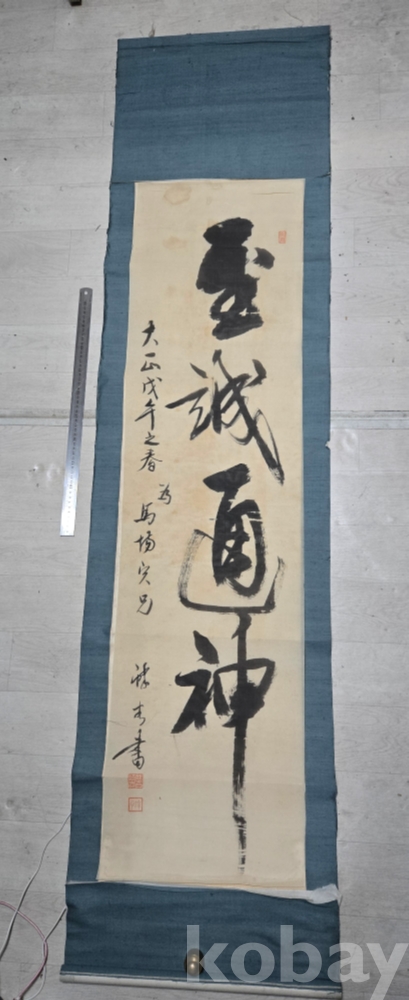 至誠通神
大正戊午之春
為
馬場実兄
書
kobay